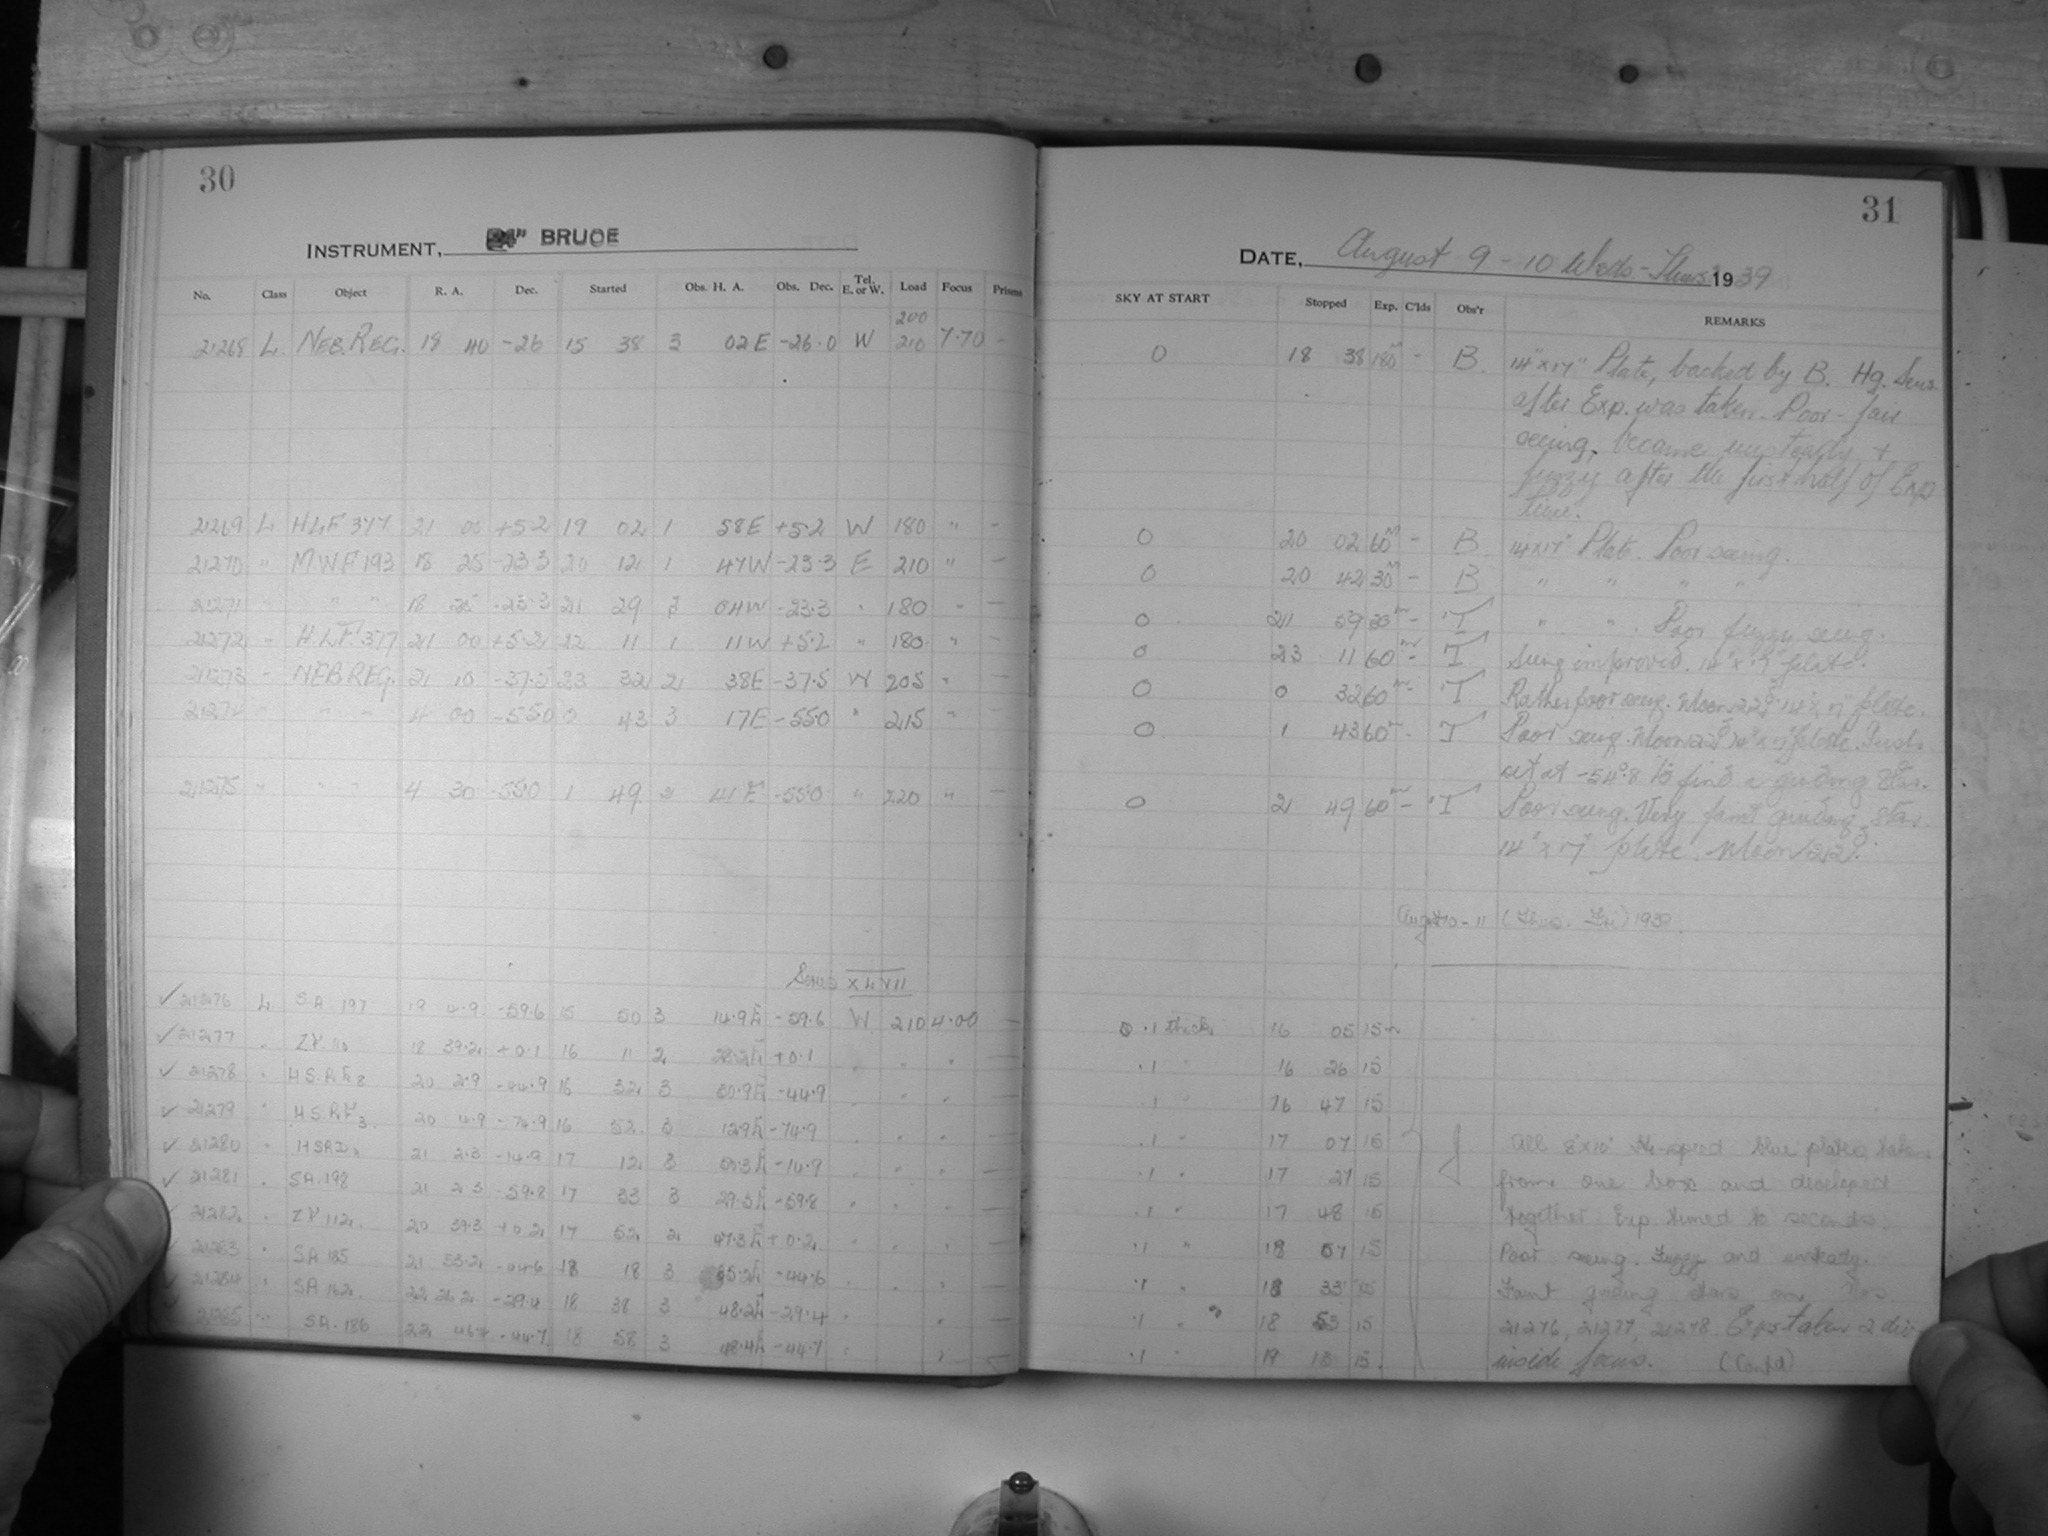 30
INSTRUMENT, 24" BRUCE
No. Class Object R. A. Dec. Started Obs. H. A. Obs. Dec. Tel. E. or W. Load Focus Prisms
200
21268 L. NEB. REG. 18 40 -26 15 38 3 02E -26.0 W 210 7.70 -
21269 L. HLF 377 21 00 +5.2 19 02 1 58E +5.2 W 180 " -
21270 " MWF 193 18 25 -23.3 20 12 1 47W -23.3 E 210 " -
21271 " " " 18 25 -23.3 21 29 3 04W -23.3 " 180 " -
21272 " HLF 377 21 00 +5.2 22 11 1 11W +5.2 " 180 " -
21273 " NEB REG. 21 10 -37.5 23 32 2 38E -37.5 W 205 " -
21274 " " " 4 00 -55.0 0 43 3 17E -55.0 " 215 " -
21275 " " " 4 30 -55.0 1 49 2 41E -55.0 " 220 " -
Series X L VII
✓ 21276 L SA 197 19 4.9 -59.6 15 50 3 14.9E -59.6 W 210 4.00 -
✓ 21277 " 18 39.2 +0.1 16 11 2 28.2E +0.1 " " " -
✓ 21278 " 20 2.9 -44.9 16 32 3 30.9E -44.9 " " " -
✓ 21279 " 20 4.9 -74.9 16 52 3 12.9E -74.9 " " " -
✓ 21280 " 21 2.3 -14.9 17 12 3 -14.9 " " " -
✓ 21281 " SA. 198 21 2.3 -59.8 17 33 3 29.3E -59.8 " " " -
✓ 21282 " 20 39.3 +0.2 17 52 2 47.3E +0.2 " " " -
✓ 21283 " SA 185 21 53.2 -44.6 18 18 3 35.2E -44.6 " " " -
✓ 21284 " SA 162 22 26.2 -29.4 18 38 3 48.2E -29.4 " " -
✓ 21285 " SA. 186 22 46.4 -44.7 18 58 3 48.4E -44.7 " " -
31
DATE, August 9 - 10 Weds - Thurs 1939
SKY AT START Stopped Exp. C'lds Obs'r REMARKS
0 18 38 180m - B. 14" x 17" Plate, backed by B. Hg. Sens.
after Exp. was taken. Poor - fair
seeing, became unsteady +
fuzzy after the first half of Exp
time.
0 20 02 60m - B 14x17" Plate. Poor seeing.
0 20 42 30m - B " " " "
0 21 59 30m - T " " Poor fuzzy seeing.
0 23 11 60m - T Seeing improved. 14" x 17" plate.
0 0 32 60m - T Rather poor seeing. Moon 22°. 14" x 17" plate.
0 1 43 60m - T Poor seeing. Moon 22° 14" x 17" plate. Inst.
set at -54°.8 to find a guiding star.
0 2 49 60m - T Poor seeing. Very faint guiding star.
14" x 17" plate. Moon 212°.
August 10 - 11 (Thurs. Fri) 1939.
.1 thick 16 05 15m
.1 " 16 26 15
.1 " 16 47 15
.1 " 17 07 15 J All 8"x10" Hi-speed blue plates, taken
.1 " 17 27 15 from one box and developed
.1 " 17 48 15 together. Exp timed to seconds.
.1 " 18 07 15 Poor seeing. Fuzzy and unsteady.
.1 " 18 33 15 Faint guiding stars on Nos
.1 " 18 53 15 21276, 21277, 21278 Exps taken 2 div
.1 19 13 15. inside focus. (Contd)